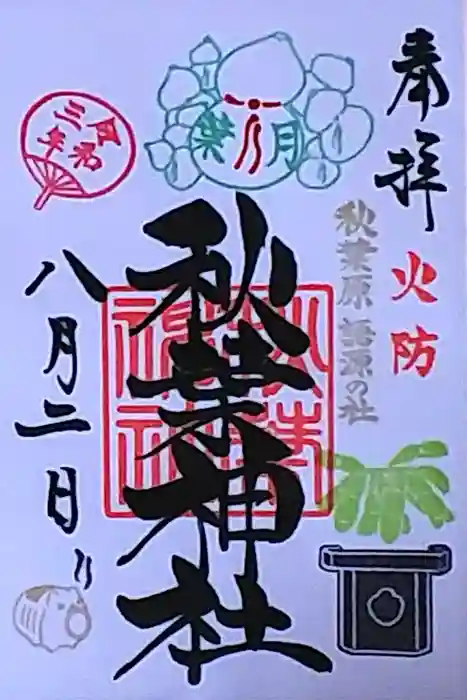 奉拝
火防
秋葉原語源の社
葉月
秋葉神社
秋葉神社
令和三年
八月二日